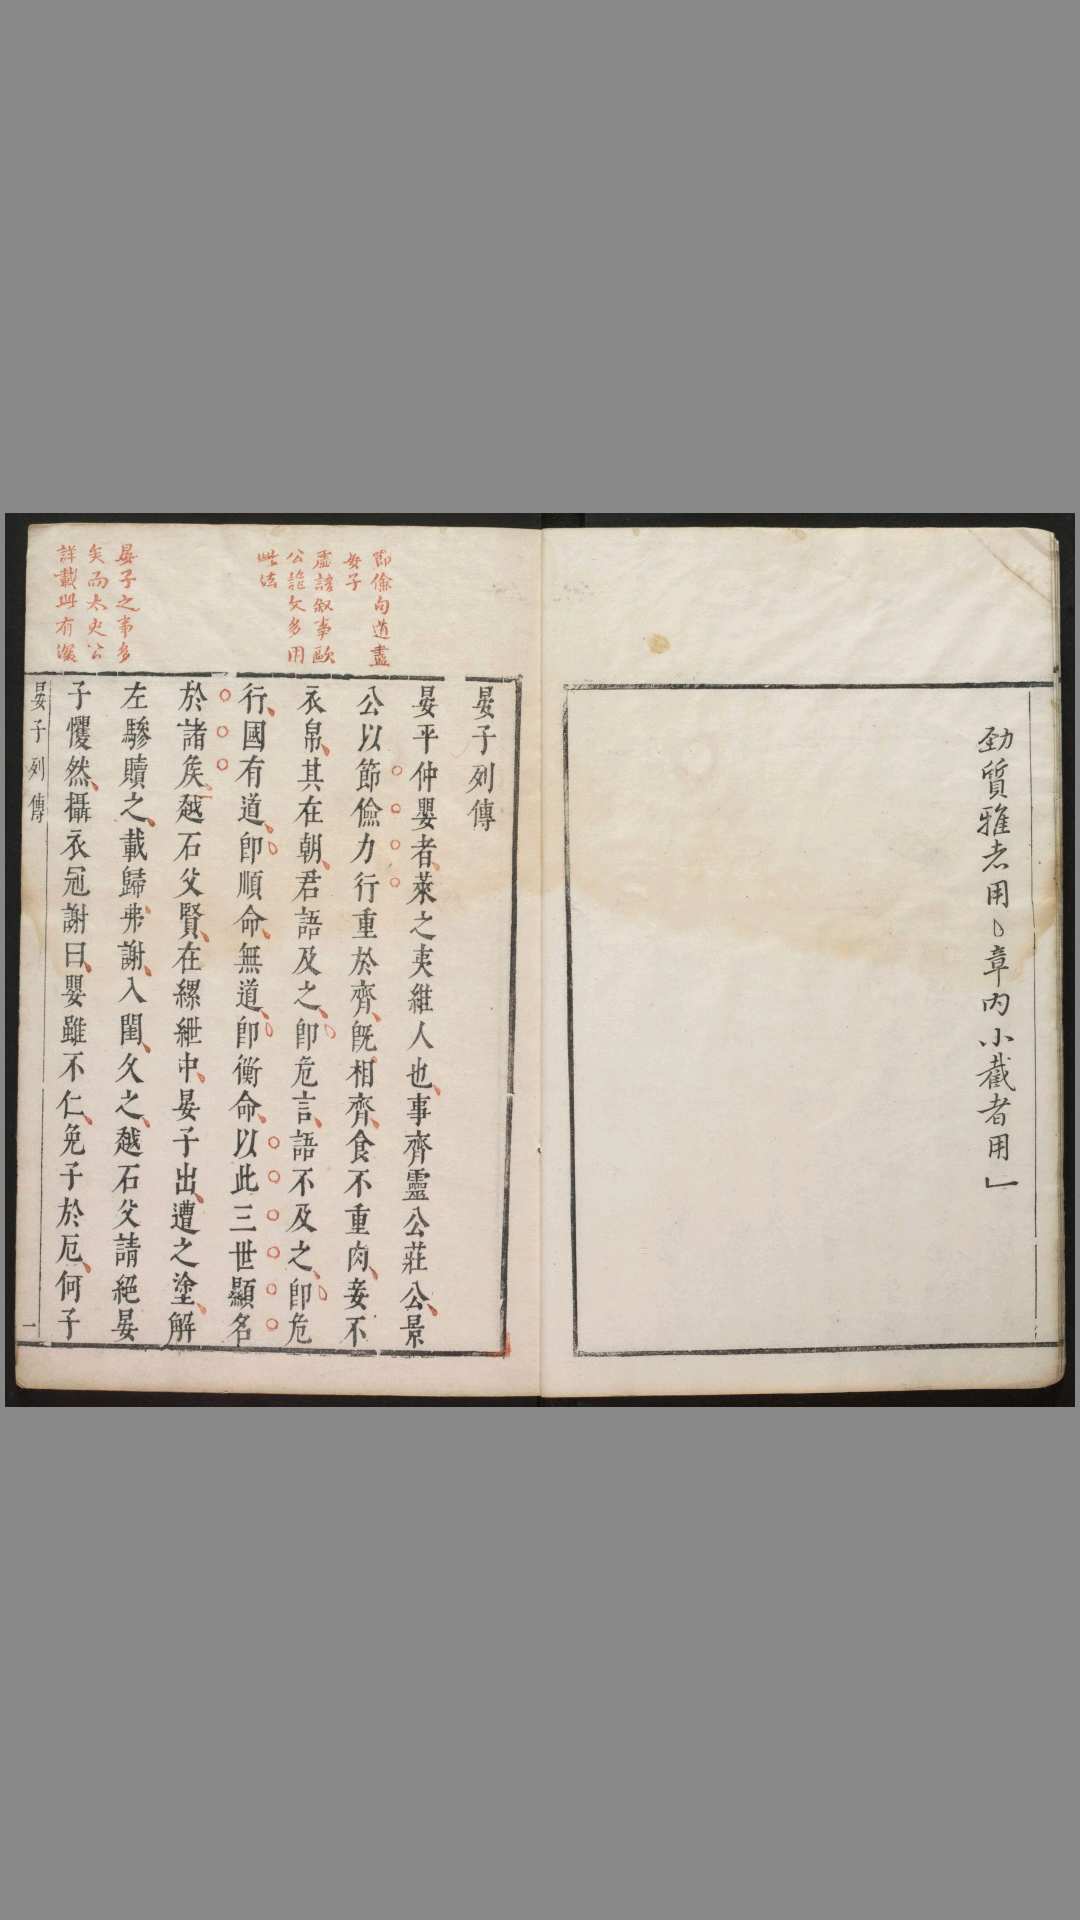 勁質雅者用﹅章內小截者用乚
節儉句道盡
晏子
虛諺敘事歐
公誌文多用
此法
晏子之事多
矣而太史公
詳載此有深
晏子列傳
晏平仲嬰者萊之夷維人也事齊靈公莊公景
公以節儉力行重於齊旣相齊食不重肉妾不
衣帛其在朝君語及之卽危言語不及之卽危
行國有道卽順命無道卽衡命以此三世顯名
於諸矦越石父賢在縲紲中晏子出遭之塗解
左驂贖之載歸弗謝入閨久之越石父請絕晏
子戄然攝衣冠謝曰嬰雖不仁免子於厄何子
晏子列傳
一